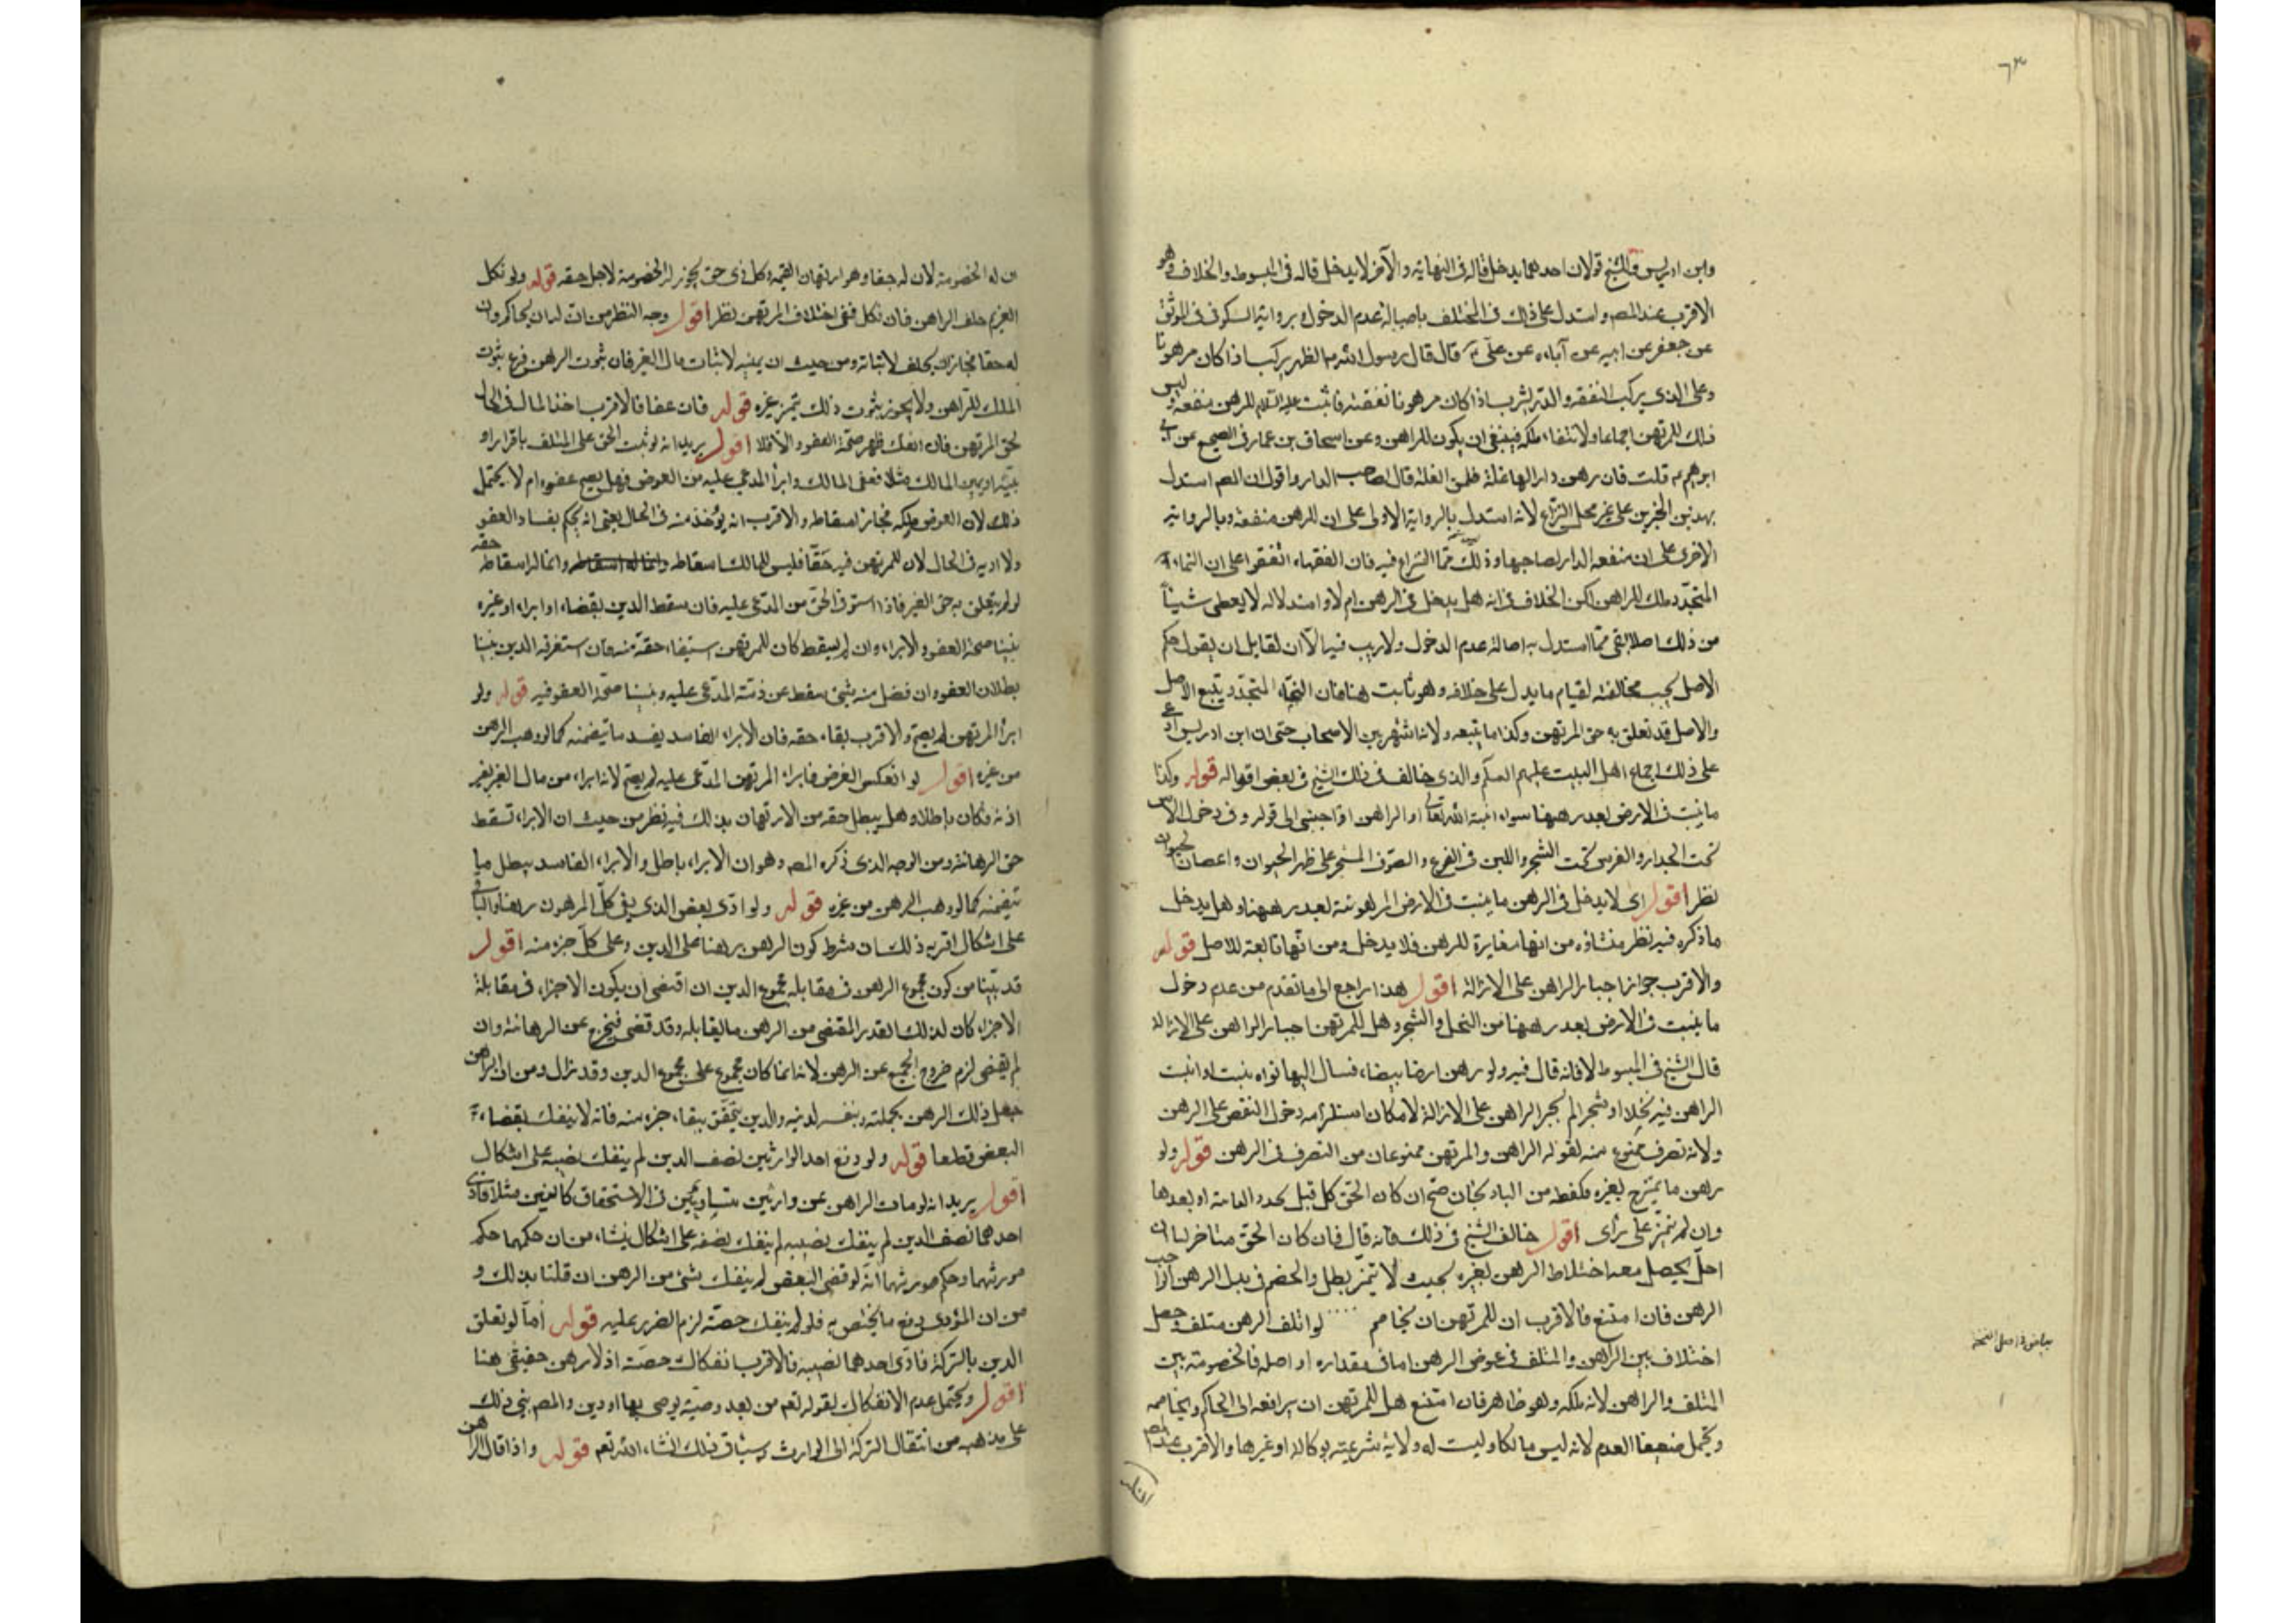 ٦٣
وابن ادريس وللشيخ قولان احدهما يدخل قاله فى النهاية والآخر لا يدخل قاله فى المبسوط والخلاف وهو
الاقرب عند المصـ واستدل على ذلك فى المختلف باصالة عدم الدخول وبرواية السكونى فى الموثق
عن جعفر عن ابيه عن آبائه عن علىّ قال قال رسول الله الظهر يركب اذا كان مرهونا
وعلى الذى يركب النفقه والدرّ يشرب اذا كان مرهونا نفقته فاثبت للرهن منفعه وليس
ذلك للمرتهن اجماعا ولانتفاء ملكه فينبغى ان يكون للراهن وعن اسحاق بن عمار فى الصحيح عن ابى
ابرهيم قلت فان رهن دارا لها غلة فلمن الغلة قال لصاحب الدار واقول ان المصـ استدل
بهدين الخبرين على غير محل النزاع لانه استدل بالرواية الاولى على ان للرهن منفعة وبالرواية
الاخرى على ان منفعه الدار لصاحبها وذلك ممّا النزاع فيه فان الفقهاء اتفقوا على ان النماء
المتجدّد ملك للراهن لكن الخلاف فى انه هل يدخل فى الرهن ام لا واستدلاله لا يعطى شيئاً
من ذلك اصلا بقى ممّا استدل به اصالة عدم الدخول ولا ريب فيه الّا ان لقايل ان يقول حكم
الاصل يجب مخالفته لقيام ما يدل على خلافه وهو ثابت هنا فان النماء المتجدّد يتبع الاصل
والاصل قد تعلق به حق المرتهن وكذا ما يتبعه ولانه اشهر بين الاصحاب حتى ان ابن ادريس ادعى
على ذلك اجماع اهل البيت عليهم السلم والذى خالف فى ذلك الشيخ فى بعض اقواله قوله وكذا
ما ينبت فى الارض بعد رهنها سواء انبته الله تعالى او الراهن او اجنبى الى قوله وفى دخول الاس
تحت الجدار والغرس تحت الشجر واللبن فى الضرع والصوف المستجز على ظهر الحيوان واغصان
نظر اقول اى لا يدخل فى الرهن ما ينبت فى الارض المرهونة بعد رهنها وهل يدخل
ما ذكره فيه نظر منشاؤه من انها مغايرة للرهن فلا يدخل ومن انها تابعة للاصل قوله
والاقرب جواز اجبار الراهن على الازالة اقول هذا راجع الى ما تقدم من عدم دخول
ما ينبت فى الارض بعد رهنها من النخل والشجر وهل للمرتهن اجبار الراهن على الازالة
قال الشيخ فى المبسوط لا فانه قال فيه ولو رهن ارضا بيضاء فسال اليها نواه ينبت او انبت
الراهن فيه نخلا او شجرا لم يجبر الراهن على الازالة لامكان استلزامه دخول النقص على الرهن
ولانه تصرف ممنوع منه لقوله الراهن والمرتهن ممنوعان من التصرف فى الرهن قوله ولو
رهن ما يمتزج بغيره كلقطه من الباذنجان صح ان كان الحق يحل قبل تجدد الثانية او بعدها
وان لم يتميز على رأى اقول خالف الشيخ فى ذلك فانه قال فان كان الحق متاخرا الى ان
اجل يحصل معه اختلاط الرهن بغيره بحيث لا يتميز بطل والخصم فى بدل الرهن
الرهن فان امتنع فالاقرب ان للمرتهن ان يخاصم .... لو اتلف الرهن متلف وحصل
بياض فى اصل النسخة
اختلاف بين الراهن والمتلف فى عوض الرهن اما فى مقداره او اصله فالخصومة بين
المتلف والراهن لانه ملكه وهو ظاهر فان امتنع هل للمرتهن ان يرافعه الى الحاكم ويخاصمه
ويحتمل ضعيفا العدم لانه ليس مالكا وليست له ولاية شرعيته بوكالة او غيرها والاقرب عند المصـ
ان له الخصومة لان له حقا وهو ارتهان القيمة وكل ذى حق يجوز له الخصومة لاجل حقه قوله ولو نكل
الغريم حلف الراهن فان نكل ففى احلاف المرتهن نظر اقول وجه النظر من ان له ان يحاكم وان
له حقا فجاز ان يحلف لاثباته ومن حيث ان يمينه لاثبات مال الغير فان ثبوت الرهن فرع ثبوت
الملك للراهن ولا يجوز ثبوت ذلك بيمين غيره قوله فان عفا فالاقرب اخذ المال فى الحال
لحق المرتهن فان انفك ظهر صحّة العفو والّا فلا اقول يريد انه لو ثبت الحق على المتلف باقرار او
بيّنه او يمين المالك مثلا فعفى المالك وابرأ المدعى عليه من العوض فهل يصح عفوه ام لا يحتمل
ذلك لان العوض ملكه فجاز اسقاطه والاقرب انه يؤخذ منه فى الحال يعنى انه يحكم بفساد العفو
ولا اديه فى الحال لان للمرتهن فيه حقّا فليس للمالك اسقاطه وانما له اسقاط حقه
لو لم يتعلق به حق الغير فاذا استوفى الحق من المدّعى عليه فان سقط الدين بقضاء او ابراء او غيره
تبينا صحة العفو والابراء وان لم يسقط كان للمرتهن استيفاء حقه منه فان استغرقه الدين تبينا
بطلان العفو وان فضل منه شئ سقط عن ذمّة المدّعى عليه وتبينا صحّة العفو فيه قوله ولو
ابرأ المرتهن لم يصح والاقرب بقاء حقه فان الابراء الفاسد يفسد ما يتضمنه كما لو وهب الرهن
من غيره اقول لو انعكس الغرض فابراء المرتهن المدّعى عليه لم يصح لانه ابراء من مال الغير بغير
اذنه فكان باطلا وهل يبطل حقه من الارتهان بذلك فيه نظر من حيث ان الابراء تسقط
حق الرهانة ومن الوجه الذى ذكره المصـ وهو ان الابراء باطل والابراء الفاسد يبطل ما
تضمنه كما لو وهب الرهن من غيره قوله ولو ادّى بعض الدين بقى كلّ المرهون رهنا بالباقى
على اشكال اقربه ذلك ان شرط كون الرهن رهنا على الدين وعلى كلّ جزء منه اقول
قد بيّنا من كون مجموع الرهن فى مقابلة مجموع الدين ان اقتضى ان يكون الاجزاء فى مقابلة
الاجزاء كان لذلك القدر المقضى من الرهن ما يقابله وقد قضى فيخرج عن الرهانة وان
لم يقتضى لزم خروج الجميع عن الرهن لانه انما كان مجموع على مجموع الدين وقد نزل ومن ان الراهن
جعل ذلك الرهن بجملته وبنفسه لدينه والدين يتحقق ببقاء جزء منه فانه لا ينفك بقضاء
البعض قطعا قوله ولو دفع احد الوارثين نصف الدين لم ينفك نصيبه على اشكال
اقول يريد انه لو مات الراهن عن وارثين متساويين فى الاستحقاق كابنين مثلا فادى
احدهما نصف الدين لم ينفك نصيبه لم ينفك نصفه على اشكال ينشاء من ان حكمهما حكم
مورثهما وحكم مورثهما انّه لو قضى البعض لم ينفك شئ من الرهن ان قلنا بذلك و
من ان المؤدى دفع ما يختص به فلو لم ينفك حصّته لزم الضرر عليه قوله أمّا لو تعلق
الدين بالتركة فادّى احدهما نصيبه فالاقرب انفكاك حصّته اذ لا رهن حقيقى هنا
اقول ويحتمل عدم الانفكاك لقوله تعم من بعد وصيّة يوصى بها او دين والمصـ بنى ذلك
على مذهبه من انتقال التركة الى الوارث وسيأتى ذلك انشاء الله تعم قوله واذا قال الراهن